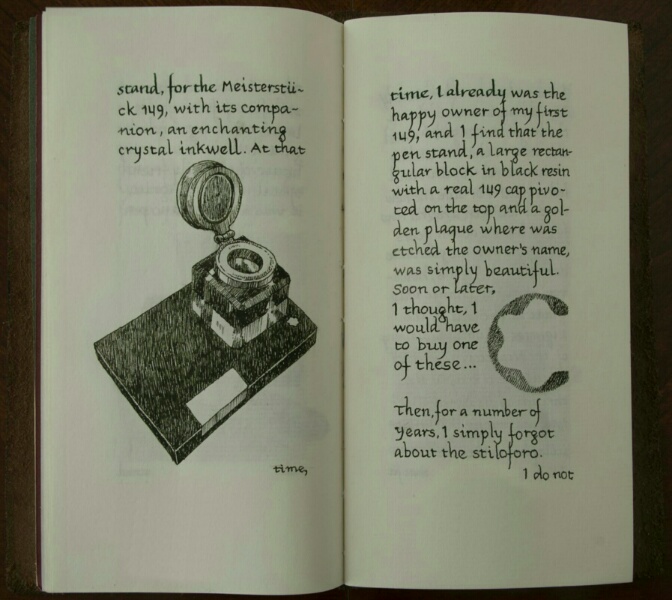 stand, for the Meisterstü-
ck 149, with its compa-
nion, an enchanting
crystal inkwell. At that
time,
time, I already was the
happy owner of my first
149, and I find that the
pen stand, a large rectan-
gular block in black resin
with a real 149 cap pivo-
ted on the top and a gol-
den plaque where was
etched the owner's name,
was simply beautiful.
Soon or later,
I thought, I
would have
to buy one
of these...
Then, for a number of
years, I simply forgot
about the stiloforo.
I do not